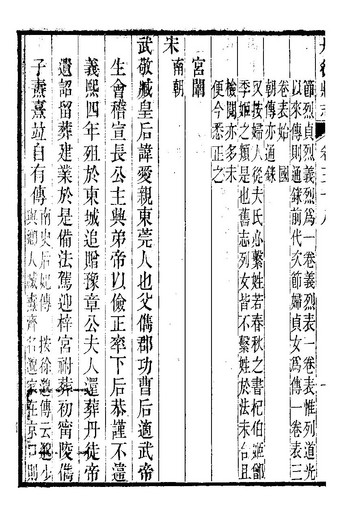 節烈貞義烈爲一卷義烈表一卷表惟列道光
以來傳則通錄前代次節婦貞女爲傳一卷表三
卷表始國
朝傳亦通錄
又按婦人從夫氏必繫姓若春秋之書杞伯姬鄫
季姬之類是也舊志列女皆不繫姓於法未合且
檢閱亦多未
便今悉正之
宮闈
宋南朝
武敬臧皇后諱愛親東莞人也父儁郡功曹后適武帝
生會稽宣長公主興弟帝以儉正率下后恭謹不違
義熙四年殂於東城追贈豫章公夫人還葬丹徒帝
遺詔留葬建業於是備法駕迎梓宮祔葬初甯陵儁
子燾熹竝自有傳
南史后妃傳 按徐邈傳云邈少
與鄉人臧燾齊名邈家在京口則